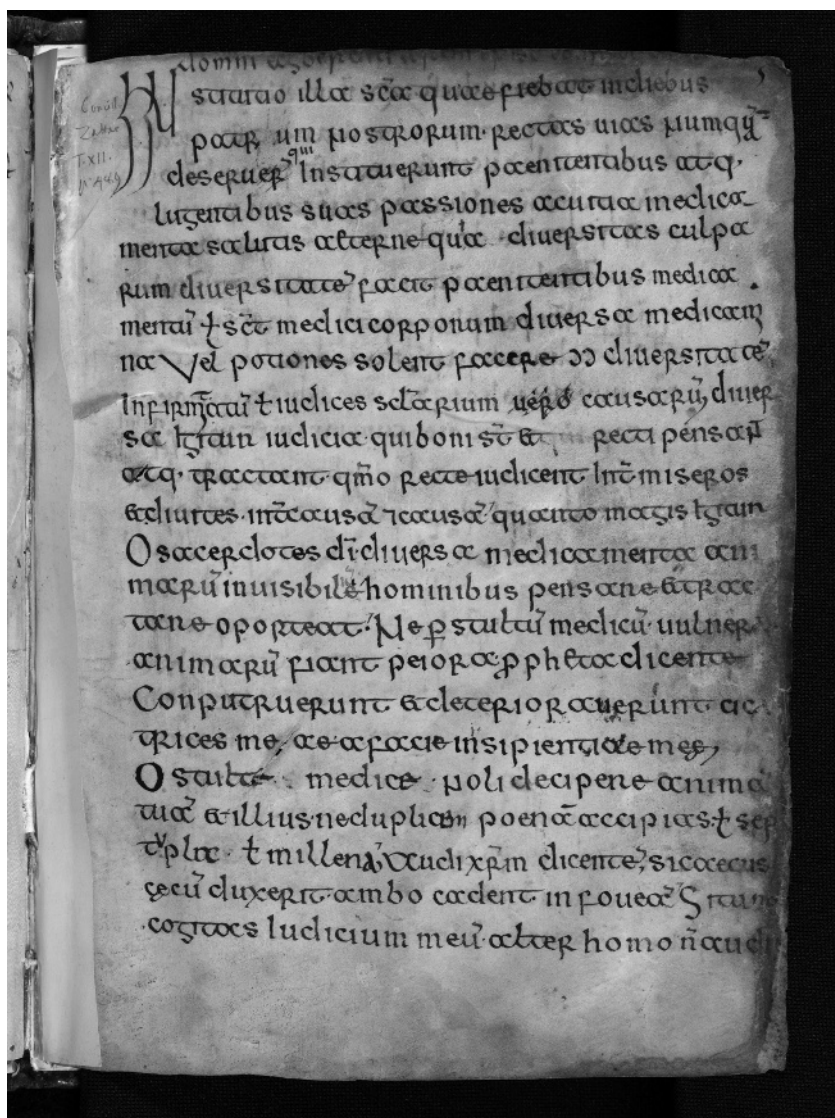 Institutio illa sc̄a quae fiebat in diebus
patrum nostrorum · rectas uias numq̄
deseruer̄ qui Instituerunt paenitentibus atq·
lugentibus suas passiones ac uitia medica
menta salutis aeterne quia diuersitas culpa
rum diuersitatē facit paenitentibus medica
mentū ł sc̄t medici corporum diuersa medicam̄
na Vel potiones solent facere ↄↄ diuersitatē
Infirmatū ł iudices sclarium uero causarū diuer
sa ħ tam iudicia · qui boni st̄ & recti pensan̄
atq· tractant qmo recte iudicent Int̄ miseros
& diuites · int̄ causā ⁊ causā quanto magis ħ tam
O sacerdotes dī diuersa medicamenta ani
marū inuisibilē hominibus pensare & trac
tare oporteat · Ne ꝑ stultū medicū uulnera
animarū fiant peiora ꝓpheta dicente
Conputruerunt & deteriorauerunt cica
trices meae a facie insipientiae meę
O stulte medice · noli decipere animā
tuā & illius · ne duplicem poenā accipias · ł sep
tuplā · ł millenā Audi xp̄m dicentē, si caecus
cecū duxerit ambo cadent in foueā Si tu non
cogitas Iudicium meū alter homo n̄ audi